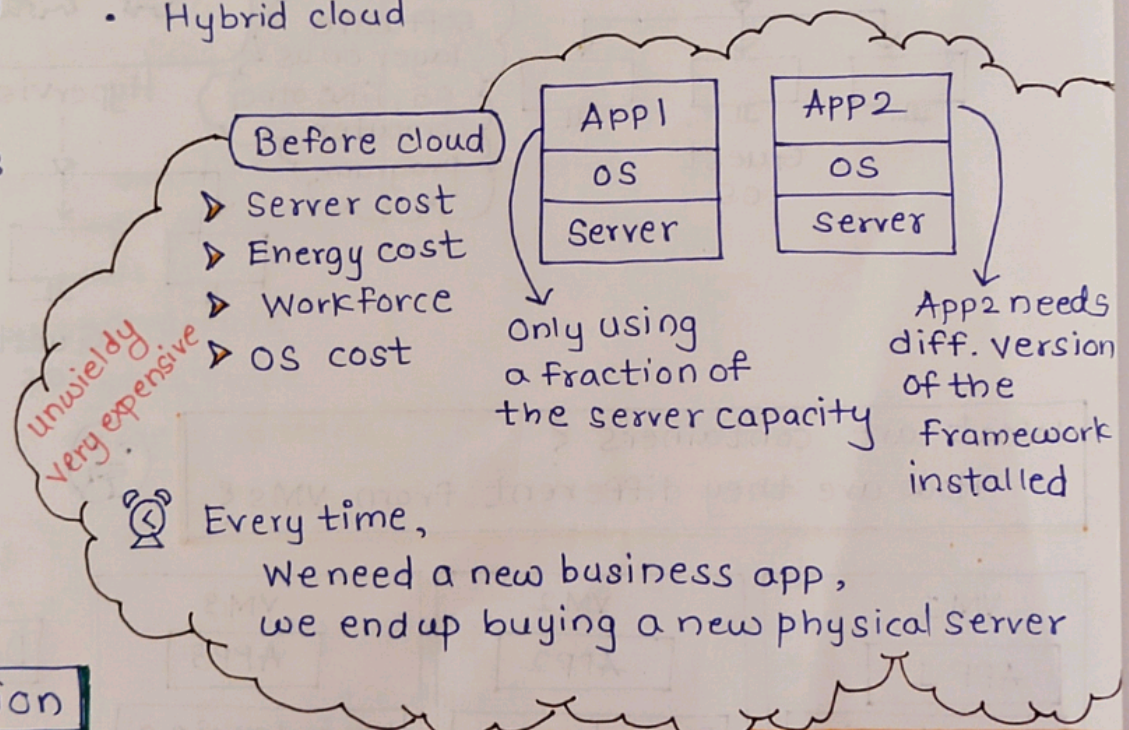 • Hybrid cloud
Before cloud
➤ Server cost
➤ Energy cost
➤ Workforce
➤ OS cost
unwieldy
very expensive
APP1
OS
Server
APP2
OS
Server
Only using
a fraction of
the server capacity
App2 needs
diff. version
of the
framework
installed
Every time,
We need a new business app,
we end up buying a new physical server
on